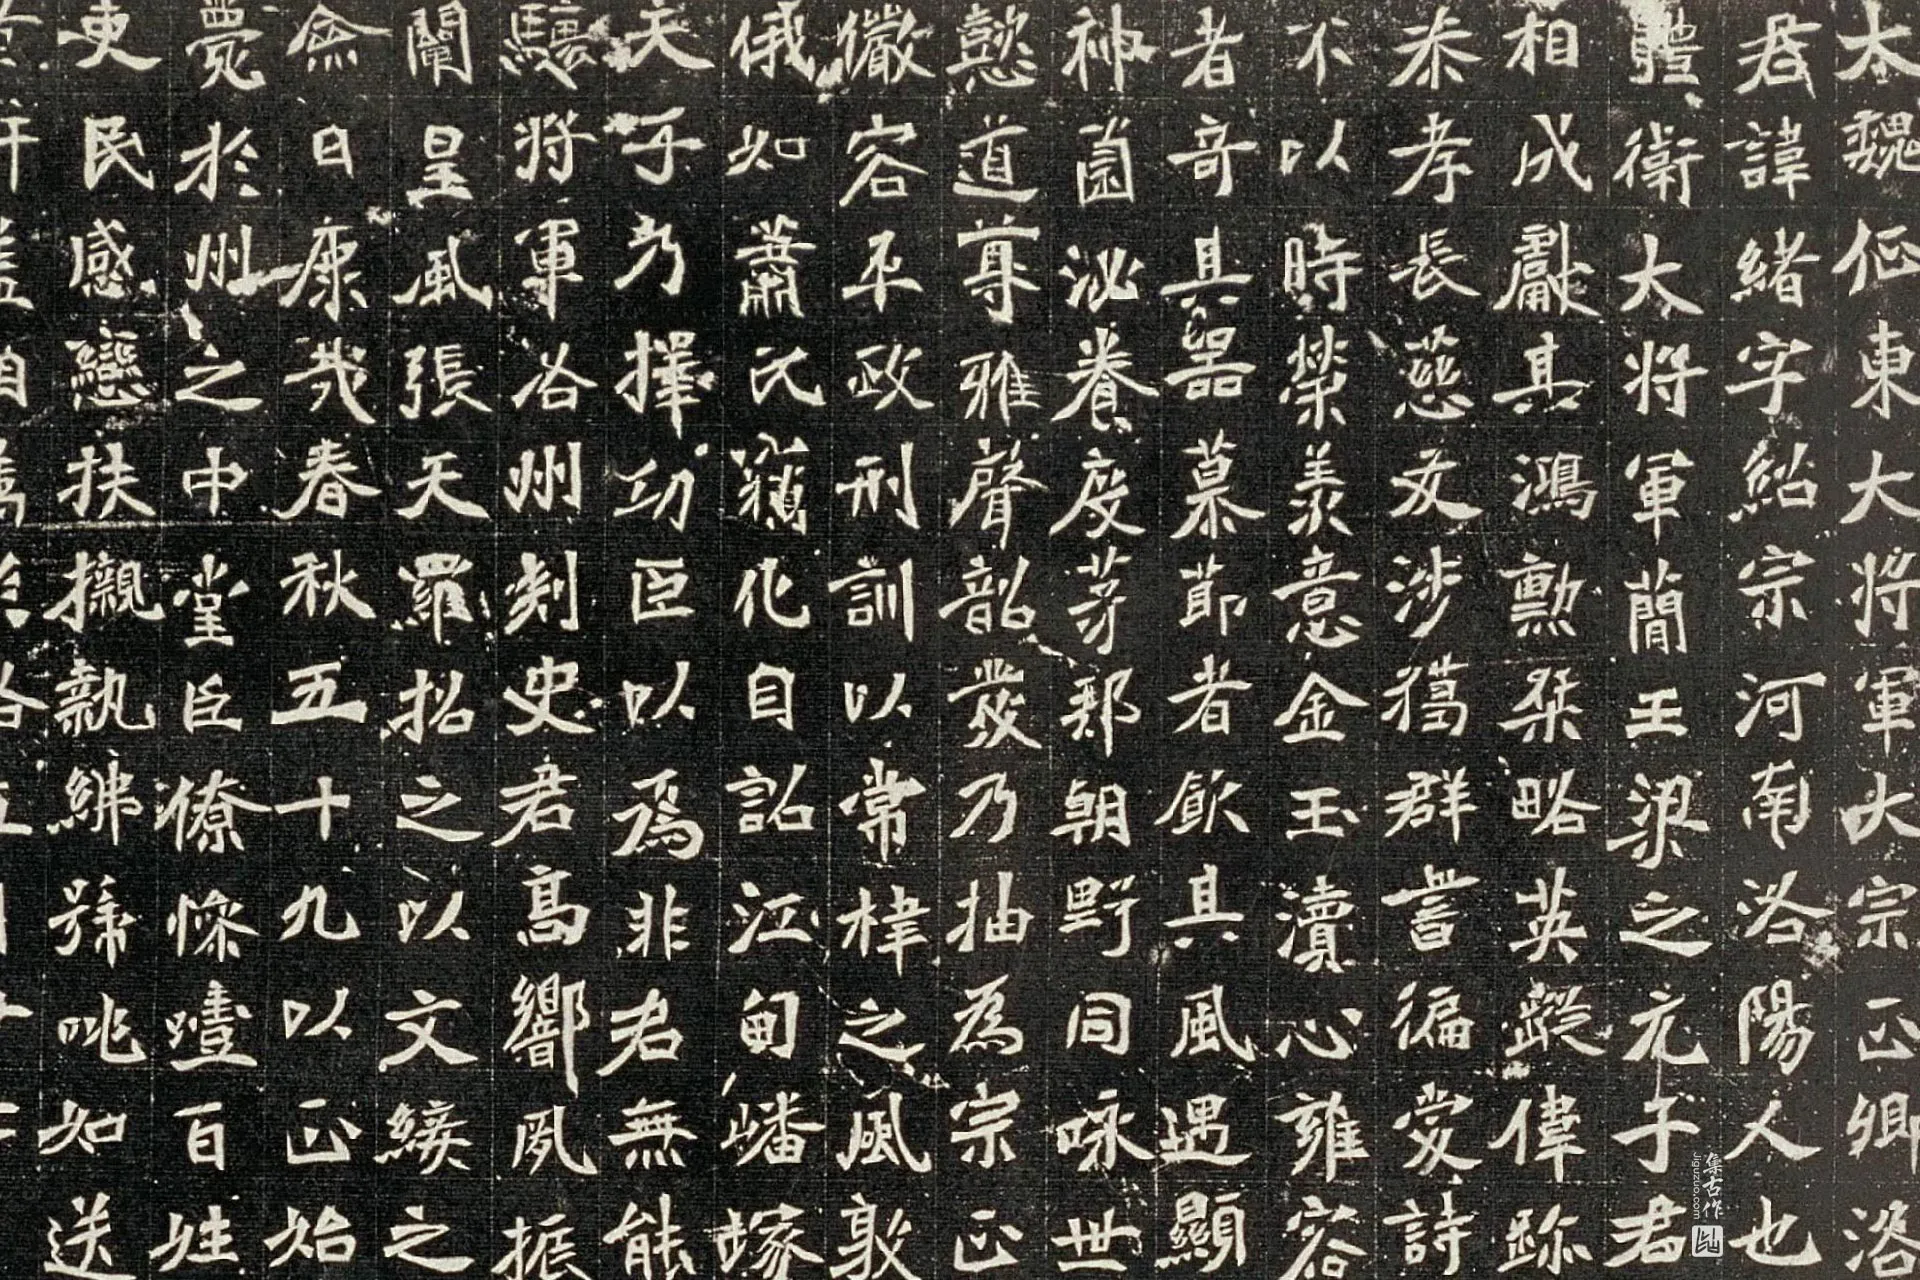 太魏征東大將軍大宗正卿洛
君諱緒字紹宗河南洛陽人也
體衛大將軍簡王梁之元子君
相成獻其鴻勲桀略英蹤偉跡
恭孝長慈友涉猎群書徧愛詩
不以時榮羡意金玉瀆心雍容
者奇其器慕節者飲其風遇顯
神菌泌養度茅邦朝野同咏世
懿道尊雅聲韶發乃抽為宗正
儼容平政刑訓以常之風敦
俄如蕭氏化自詔江甸嶓塚
天子乃擇功臣以為非君無能
驤將軍洛州刺史君高響夙振
闡皇風張天羅招之以文綏之
僉曰康哉春秋五十九以正始
薨於州之中堂臣僚慘噎百姓
吏民感戀扶櫬執紼號咷如送
集古作
jiguzuo.com